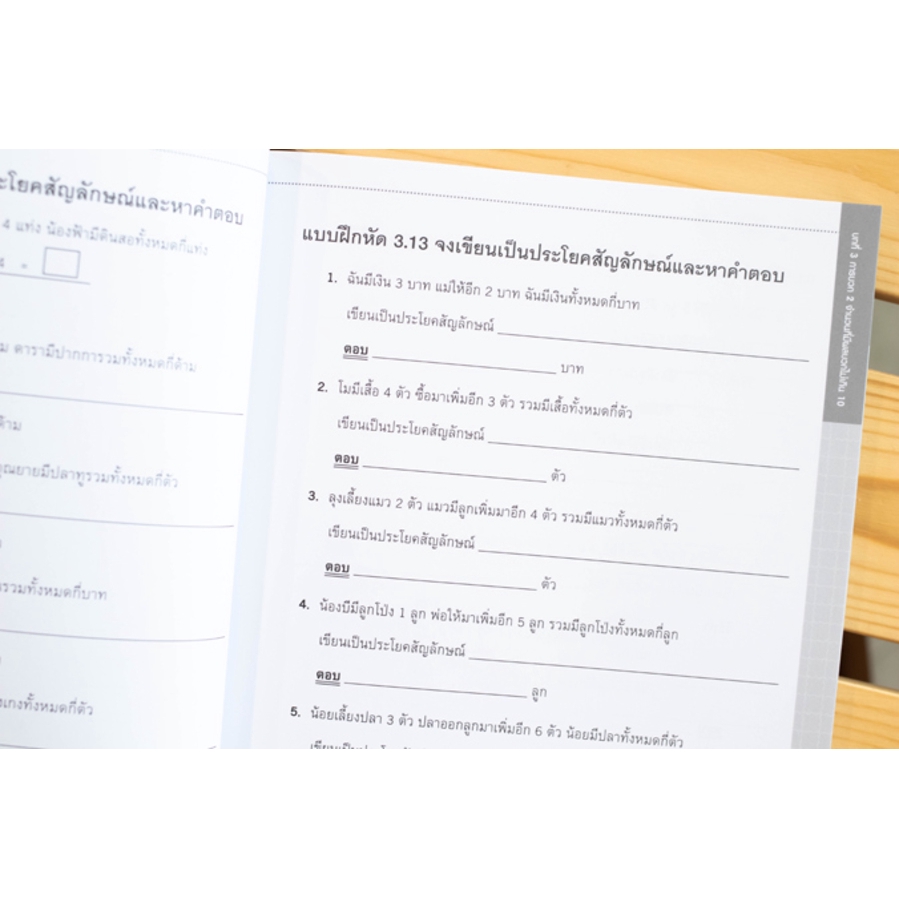 ะโยคสัญลักษณ์และหาคำตอบ
4 แท่ง น้องฟ้ามีดินสอทั้งหมดกี่แท่ง
4 =
ม ดารามีปากการวมทั้งหมดกี่ด้าม
ด้าม
คุณยายมีปลาทูรวมทั้งหมดกี่ตัว
รวมทั้งหมดกี่บาท
เกงทั้งหมดกี่ตัว
แบบฝึกหัด 3.13 จงเขียนเป็นประโยคสัญลักษณ์และหาคำตอบ
1. ฉันมีเงิน 3 บาท แม่ให้อีก 2 บาท ฉันมีเงินทั้งหมดกี่บาท
เขียนเป็นประโยคสัญลักษณ์
ตอบ บาท
2. โมมีเสื้อ 4 ตัว ซื้อมาเพิ่มอีก 3 ตัว รวมมีเสื้อทั้งหมดกี่ตัว
เขียนเป็นประโยคสัญลักษณ์
ตอบ ตัว
3. ลุงเลี้ยงแมว 2 ตัว แมวมีลูกเพิ่มมาอีก 4 ตัว รวมมีแมวทั้งหมดกี่ตัว
เขียนเป็นประโยคสัญลักษณ์
ตอบ ตัว
4. น้องบีมีลูกโป่ง 1 ลูก พ่อให้มาเพิ่มอีก 5 ลูก รวมมีลูกโป่งทั้งหมดกี่ลูก
เขียนเป็นประโยคสัญลักษณ์
ตอบ ลูก
5. น้อยเลี้ยงปลา 3 ตัว ปลาออกลูกมาเพิ่มอีก 6 ตัว น้อยมีปลาทั้งหมดกี่ตัว
บทที่ 3 การบวก 2 จำนวนที่มีผลบวกไม่เกิน 10